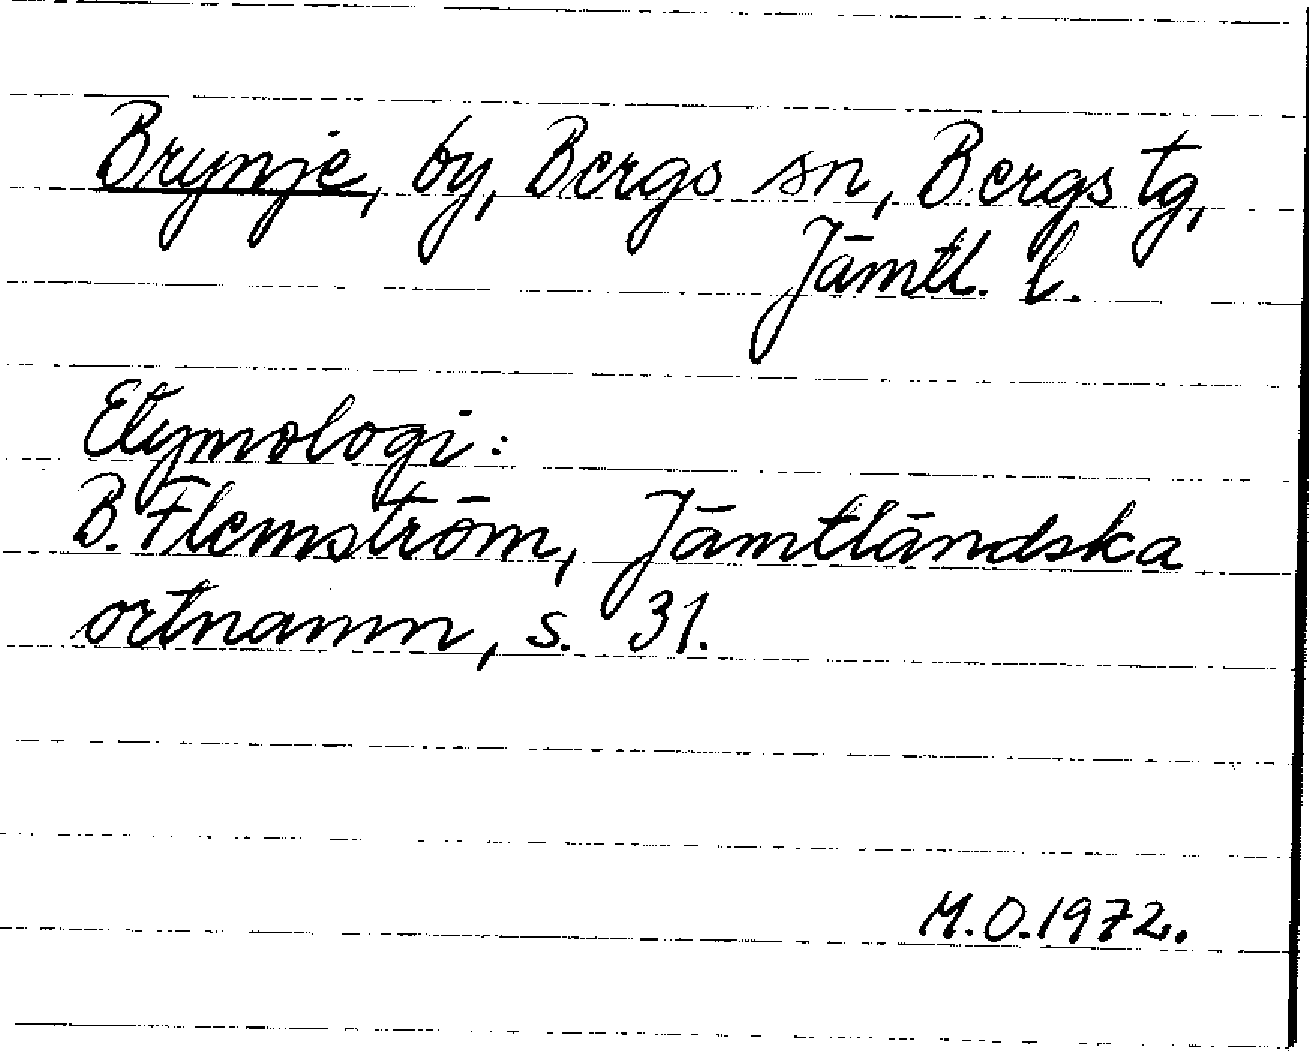 Brynje, by, Bergs sn, Bergs tg,
Jämtl. l.
Etymologi:
B. Flemström, Jämtländska
ortnamn, s. 31.
M.O.1972.